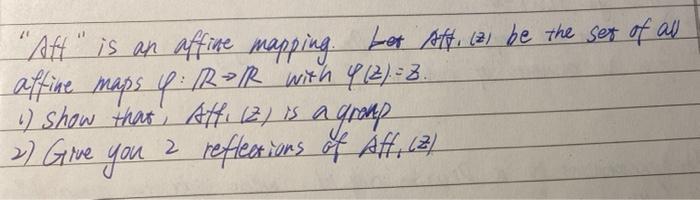 "Aff" is an affine mapping. Let Aff₁(Z) be the set of all
affine maps φ: R→R with φ(Z)=Z.
1) Show that, Aff₁(Z) is a group
2) Give you 2 reflections of Aff₁(Z)